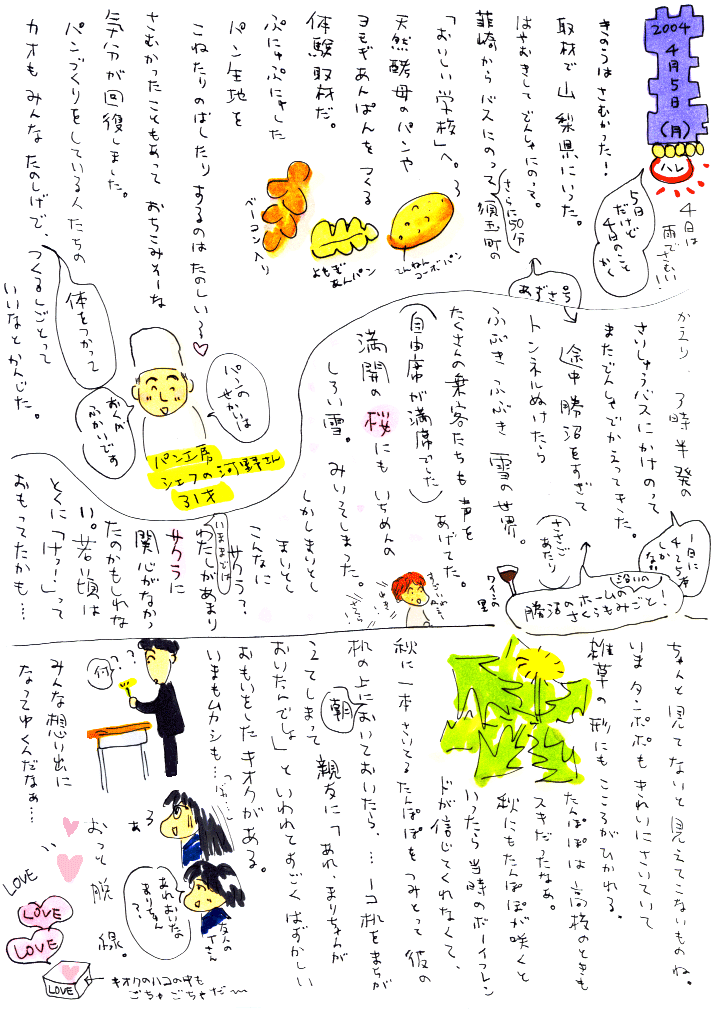 2004
4月5日
(月)
ハレ
4日は
雨でさむい!
5日
だけど
4日のこと
かく
きのうはさむかった!
取材で山梨県にいった。
はやおきしてでんしゃにのって。
韮崎からバスにのって須玉町の
さらに50分
「おいしい学校」へ。
天然酵母のパンや
ヨモギあんぱんをつくる
体験取材だ。
ぷにゅぷにゅした
パン生地を
こねたりのばしたりするのはたのしい〜♡
さむかったこともあって おちこみそーな
気分が回復しました。
パンづくりをしている人たちの
カオもみんなたのしげで、つくるしごとって
いいなとかんじた。
ベーコン入り
よもぎ
あんパン
てんねん
コーボパン
体をつかって
パンの
せかいは
おくが
ふかいです
パン工房
シェフの河野さん
31才
あずさ号
かえり、3時半発の
さいしゅうバスにかけのって
またでんしゃでかえってきた。
途中勝沼をすぎて
トンネルぬけたら
ふぶき ふぶき 雪の世界。
たくさんの乗客たちも声を
あげてた。
(自由席が満席でした)
満開の桜にもいちめんの
しろい雪。みいってしまった。
ささご
あたり
1日に
4て5本
しか
ない
沿いの
勝沼のホームの
さくらもみごと!
ワインの
里
しかしまいとし
まいとし
こんなに
サクラって?
いままでは
わたしがあまり
サクラに
関心がなかっ
たのかもしれな
い。若い頃は
とくに「けっー!」って
おもってたかも…
ちゃんと見てないと見えてこないものね。
いまタンポポもきれいにさいていて
雑草の形にもこころがひかれる。
たんぽぽは高校のときも
スキだったなあ。
秋にもたんぽぽが咲くと
いったら当時のボーイフレン
ドが信じてくれなくて、
秋に一本さいてるたんぽぽをつみとって彼の
机の上においておいたら、…1コ机をまちが
朝
えてしまって 親友に「あれ、まりちゃんが
おいたんでしょ」といわれてすごくはずかしい
おもいをしたキオクがある。
いまもムカシも…
みんな想い出に
なってゆくんだなぁ…
何
??
あ
る
おっと脱線。
友人の
Tさん
あれおいたな
まりちゃん
LOVE
LOVE
LOVE
LOVE
キオクのハコの中も
ごちゃごちゃだ〜